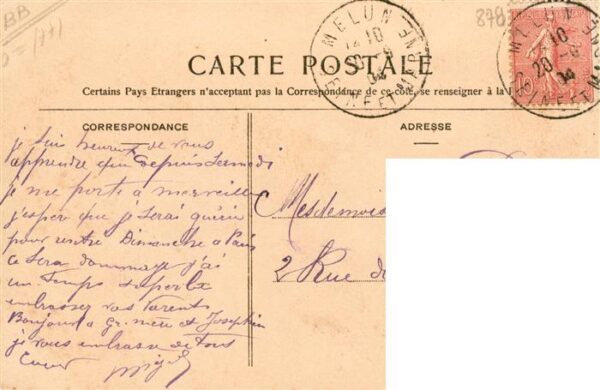 BB
878
MELUN
12 10
20 -9
04
SEINE ET MARNE
MELUN
10
20
04
SEINE ET MARNE
CARTE POSTALE
Certains Pays Etrangers n'acceptant pas la Correspondance de ce côté, se renseigner à la
CORRESPONDANCE
ADRESSE
je suis heureux de vous
apprendre que depuis samedi
je me porte à merveille
j'espere que je serai guérie
pour rentre Dimanche à Paris
ce sera dommage j'ai
un temps superbe
embrassez vos Parents
Bonjour a gr. mère et Josephin
je vous embrasse de tous
Coeur
Mesdemois
2 Rue d